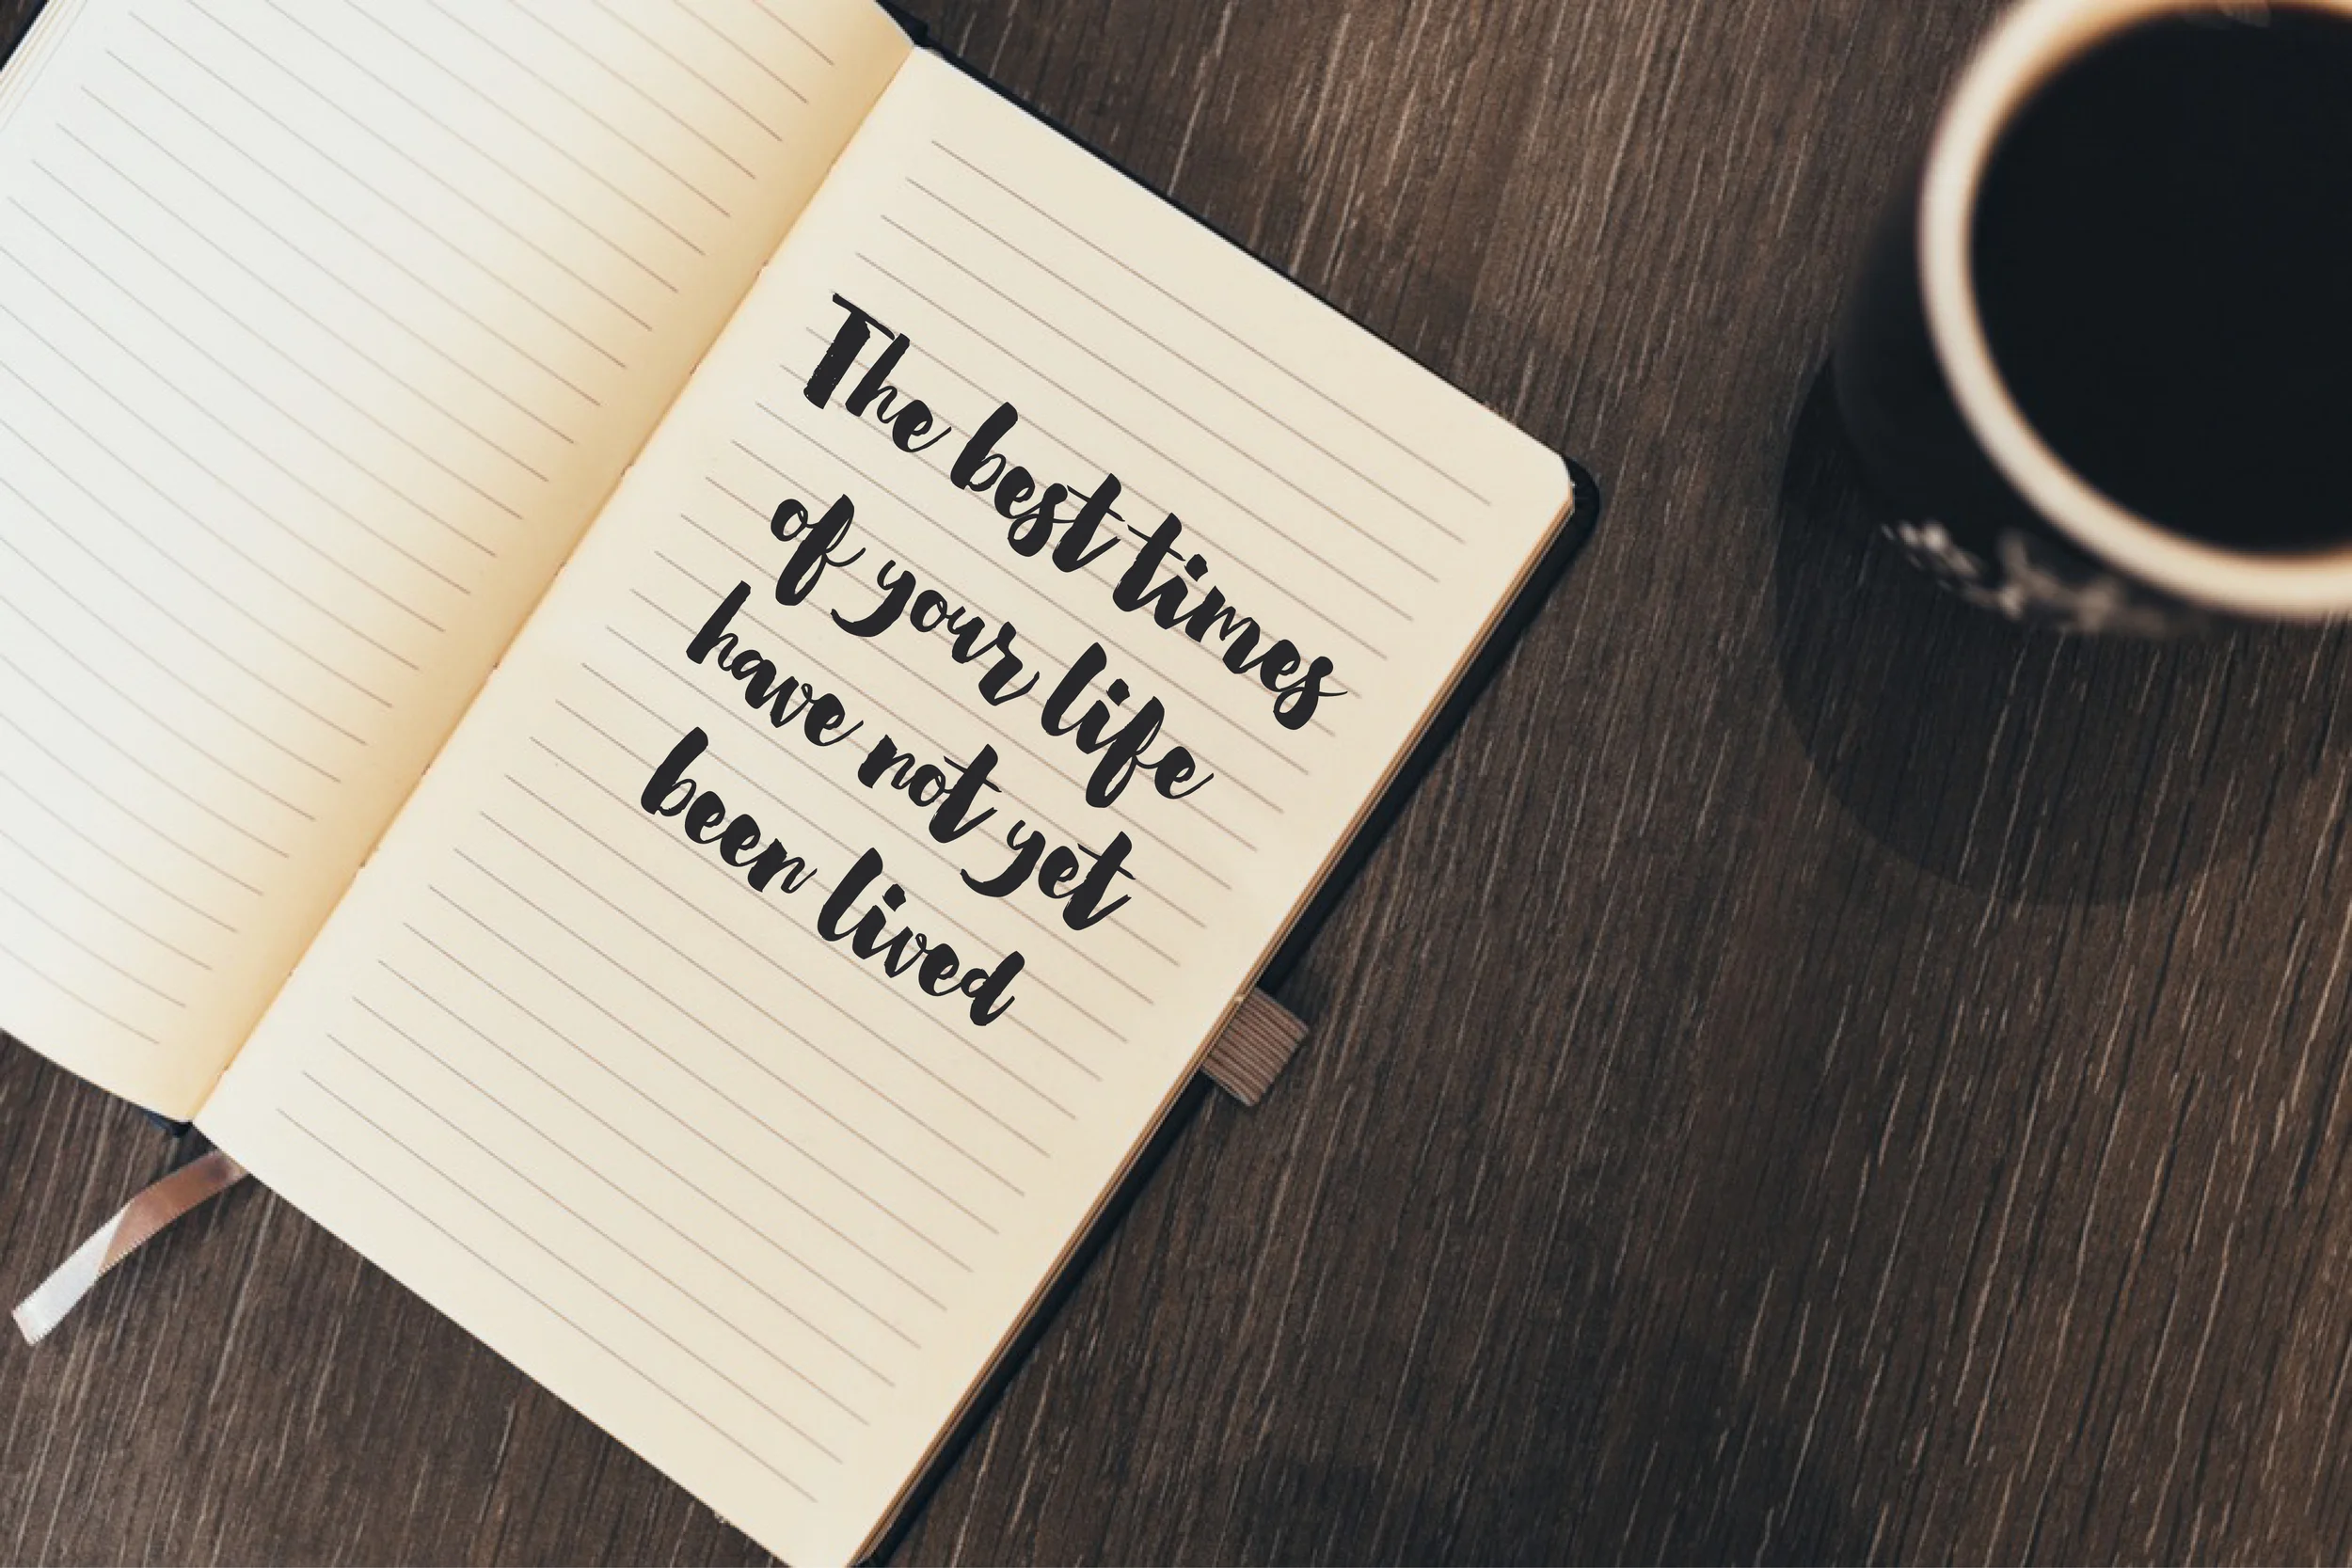 The best times
of your life
have not yet
been lived